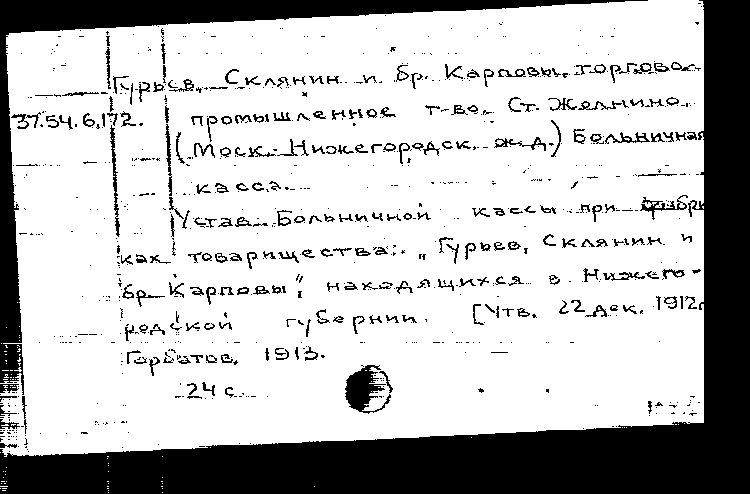 Гурьев, Склянин и бр. Карповы, торгово-
37.54.6.172. промышленное т-во, Ст. Желнино,
(Моск.-Нижегородск. ж.д.) Больничная
касса.
Устав Больничной кассы при фабри
как товарищества: „Гурьев, Склянин и
бр. Карповы", находящихся в Нижего-
родской губернии. [Утв. 22 дек. 1912г
Горбатов, 1913.
24 с.